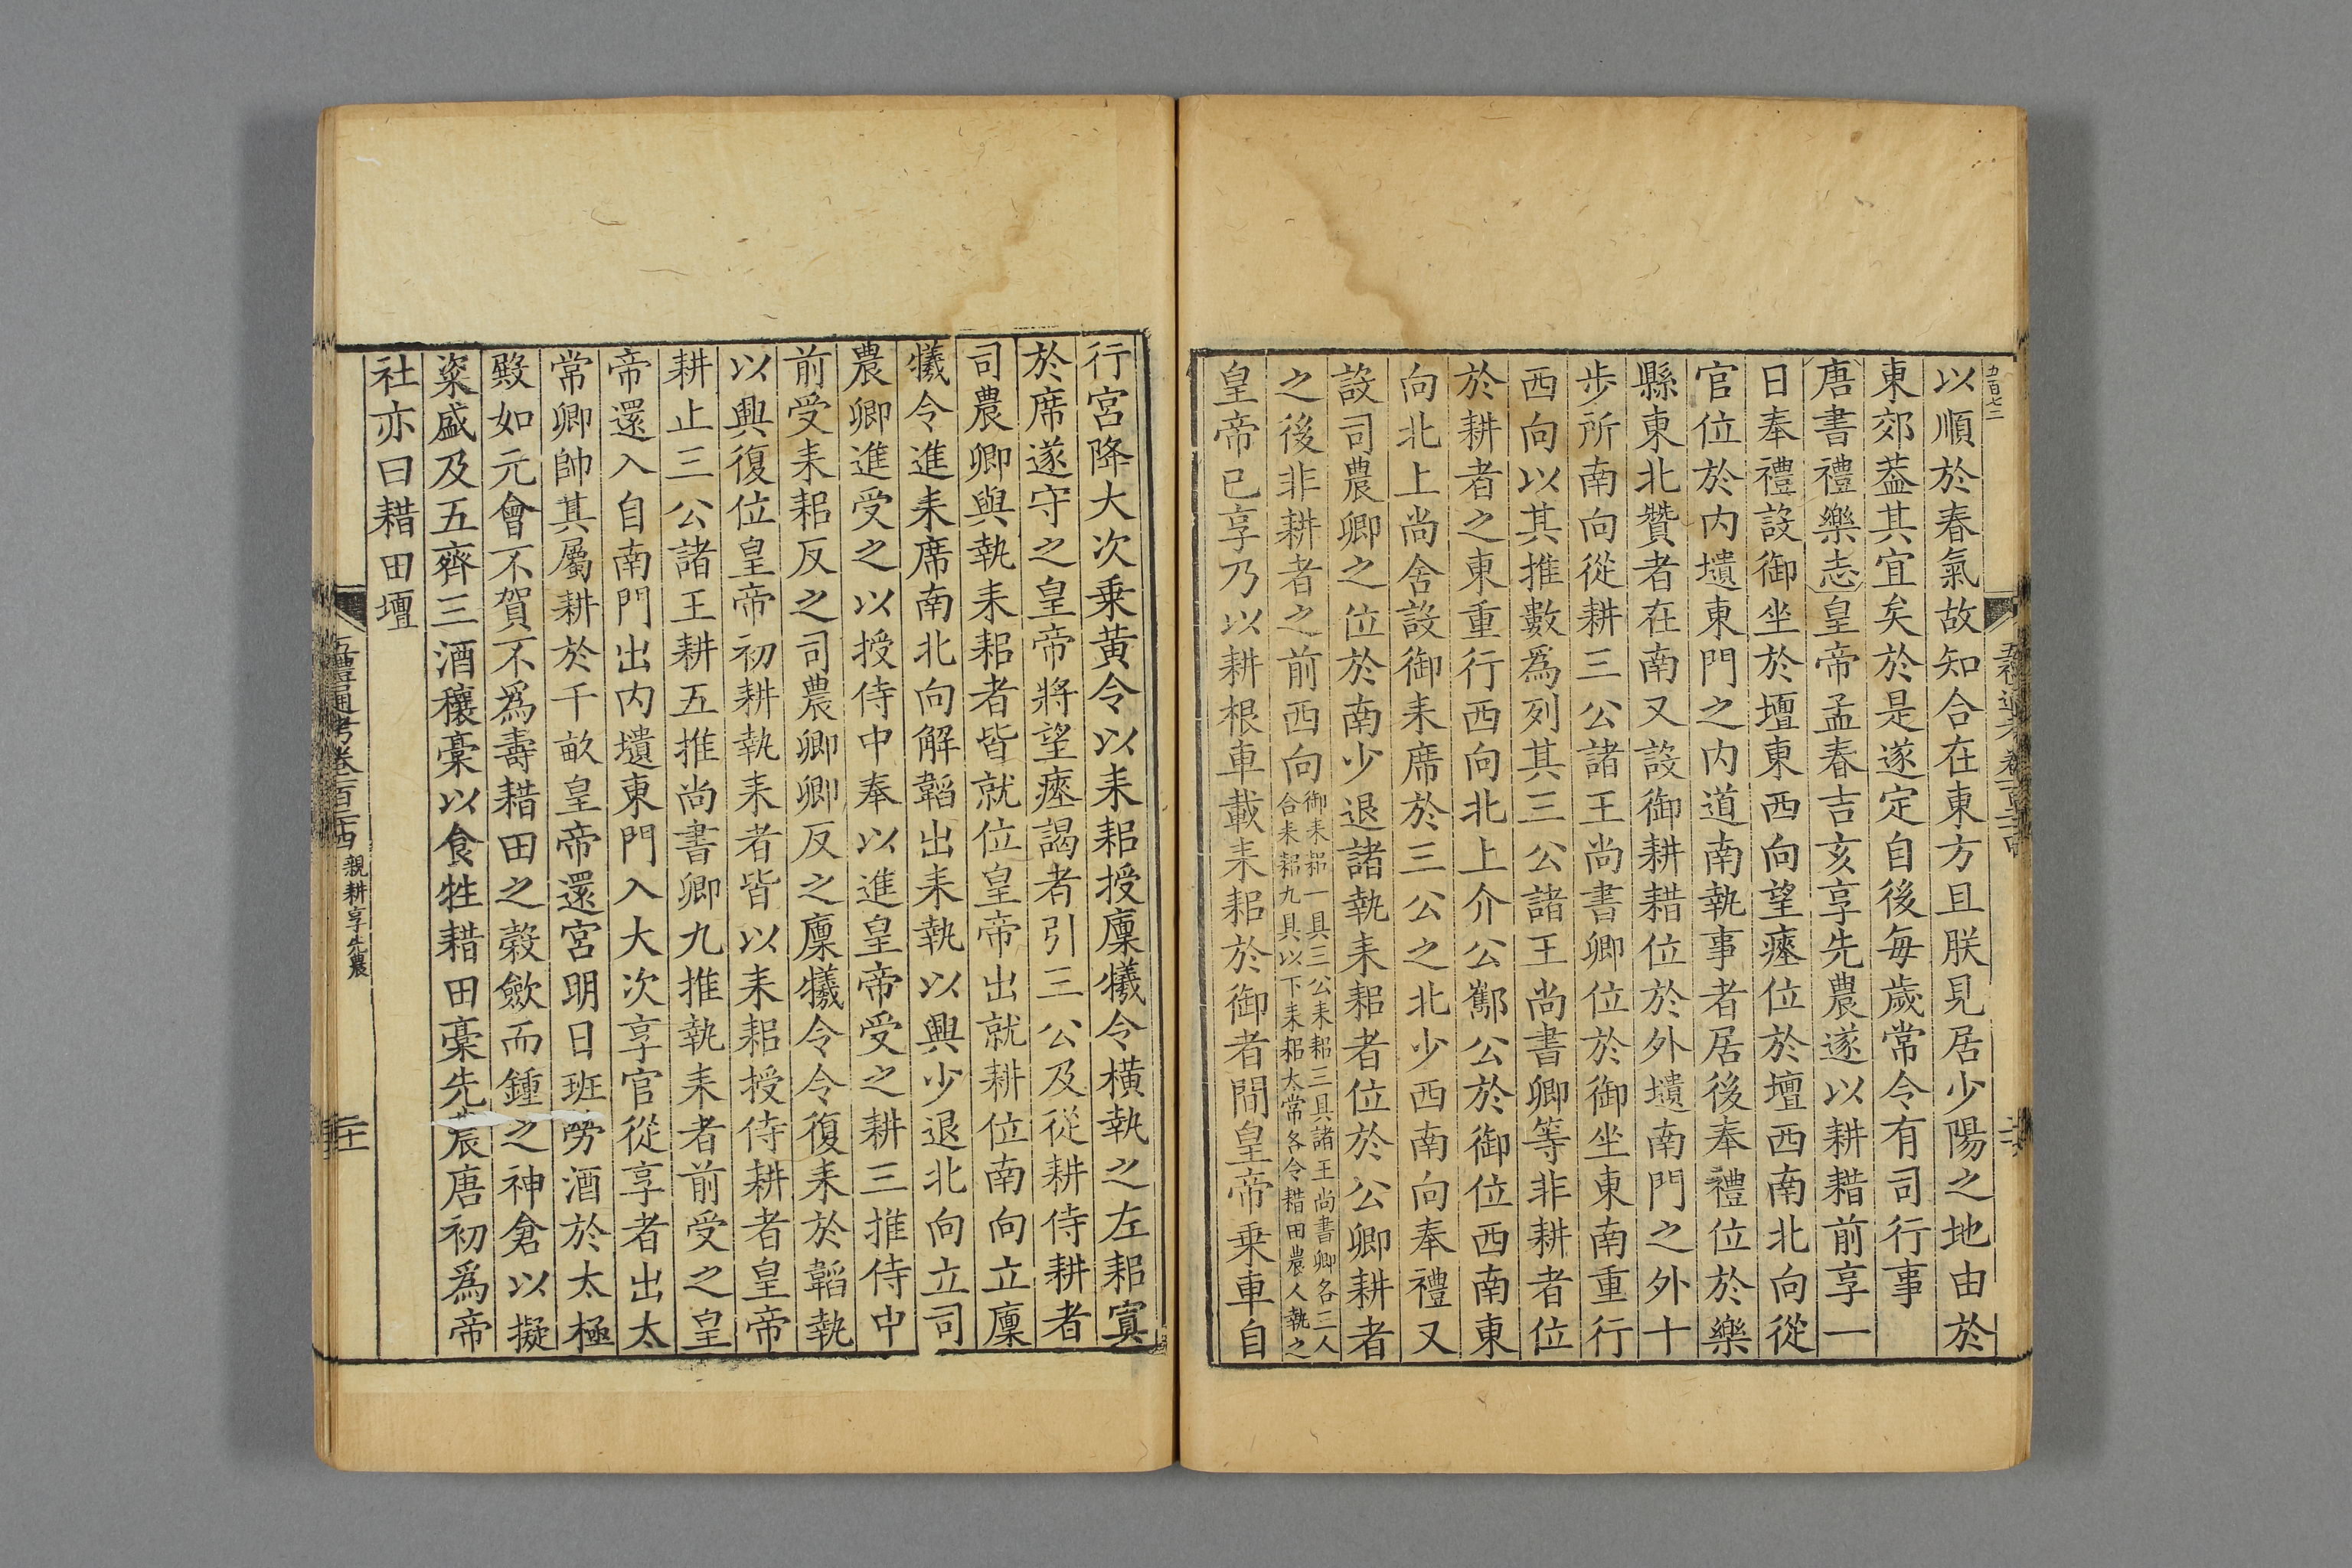 五百七二
以順於春氣故知合在東方且朕見居少陽之地由於
東郊葢其宜矣於是遂定自後每歲常令有司行事
唐書禮樂志皇帝孟春吉亥享先農遂以耕耤前享一
日奉禮設御坐於壇東西向望瘞位於壇西南北向從
官位於内壝東門之内道南執事者居後奉禮位於樂
縣東北贊者在南又設御耕耤位於外壝南門之外十
步所南向從耕三公諸王尚書卿位於御坐東南重行
西向以其推數爲列其三公諸王尚書卿等非耕者位
於耕者之東重行西向北上介公酅公於御位西南東
向北上尚舍設御耒席於三公之北少西南向奉禮又
設司農卿之位於南少退諸執耒耜者位於公卿耕者
之後非耕者之前西向御耒耜一具三公耒耜三具諸王尚書卿各三人
合耒耜九具以下耒耜太常各令耤田農人執之
皇帝已享乃以耕根車載耒耜於御者間皇帝乗車自
行宮降大次乗黄令以耒耜授廩犧令橫執之左耜寘
於席遂守之皇帝將望瘞謁者引三公及從耕侍耕者
司農卿與執耒耜者皆就位皇帝出就耕位南向立廩
犧令進耒席南北向解韜出耒執以興少退北向立司
農卿進受之以授侍中奉以進皇帝受之耕三推侍中
前受耒耜反之司農卿卿反之廩犧令令復耒於韜執
以興復位皇帝初耕執耒者皆以耒耜授侍耕者皇帝
耕止三公諸王耕五推尚書卿九推執耒者前受之皇
帝還入自南門出内壝東門入大次享官從享者出太
常卿帥其屬耕於千畝皇帝還宮明日班勞酒於太極
殿如元會不賀不爲壽耤田之榖斂而鍾之神倉以擬
粢盛及五齊三酒穰稾以食牲耤田稾先農唐初爲帝
社亦曰耤田壇
五禮通考卷一百二十四 親耕享先農